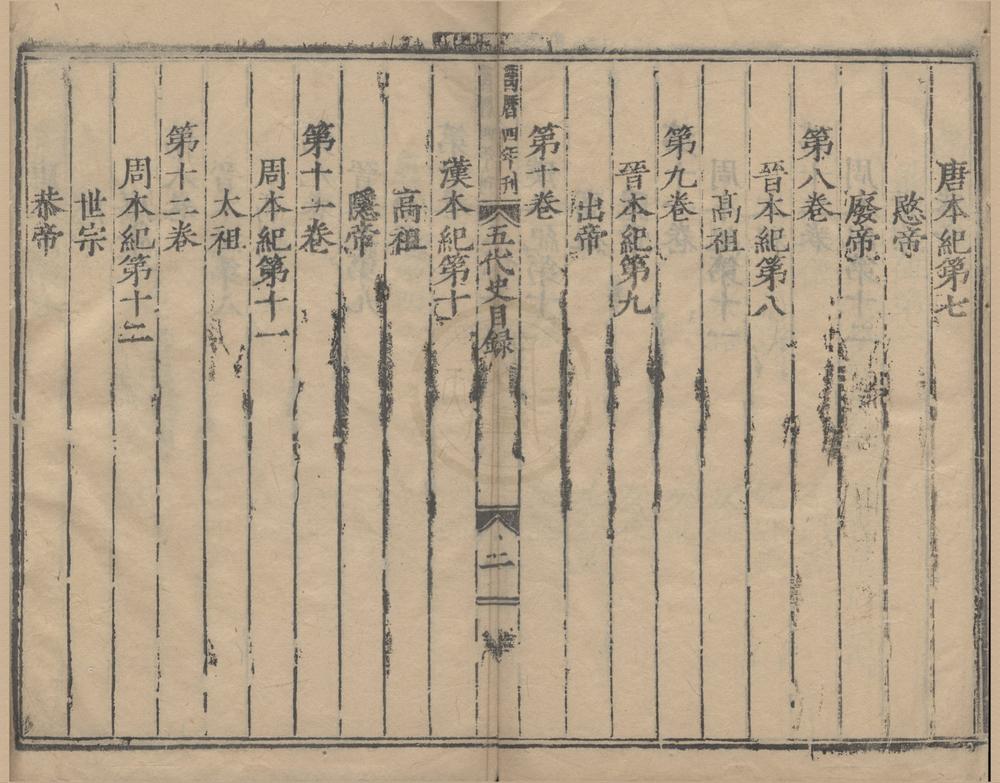 唐本紀第七
愍帝
廢帝
第八卷
晉本紀第八
髙祖
第九卷
晉本紀第九
出帝
第十卷
萬曆四年刊
五代史目録
二
漢本紀第十
高祖
隱帝
第十一卷
周本紀第十一
太祖
第十二卷
周本紀第十二
世宗
恭帝